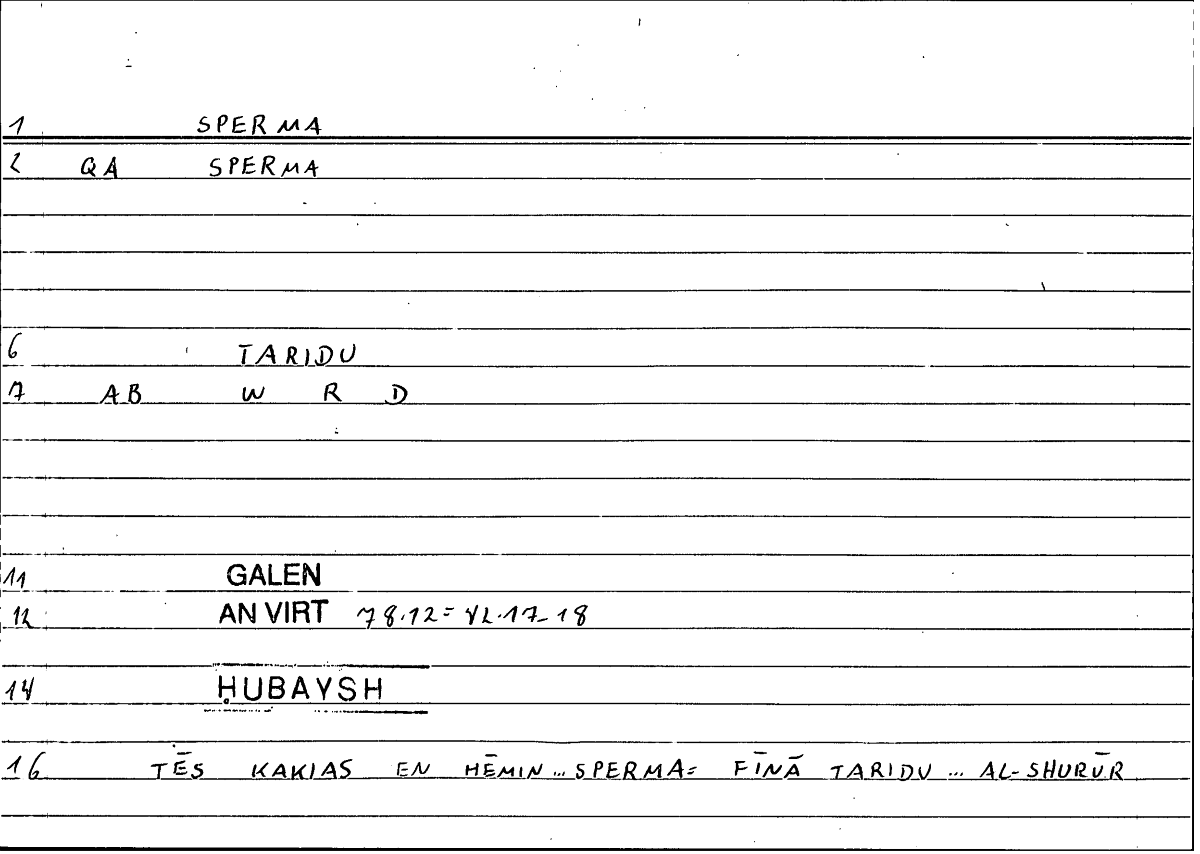 1 SPERMA
2 QA SPERMA
6 TARIDU
7 AB W R D
11 GALEN
12 AN VIRT 78.12= 42.17-18
14 ḤUBAYSH
16 TĒS KAKIAS EN HĒMIN... SPERMA= FĪNĀ TARIDU ... AL-SHURŪR